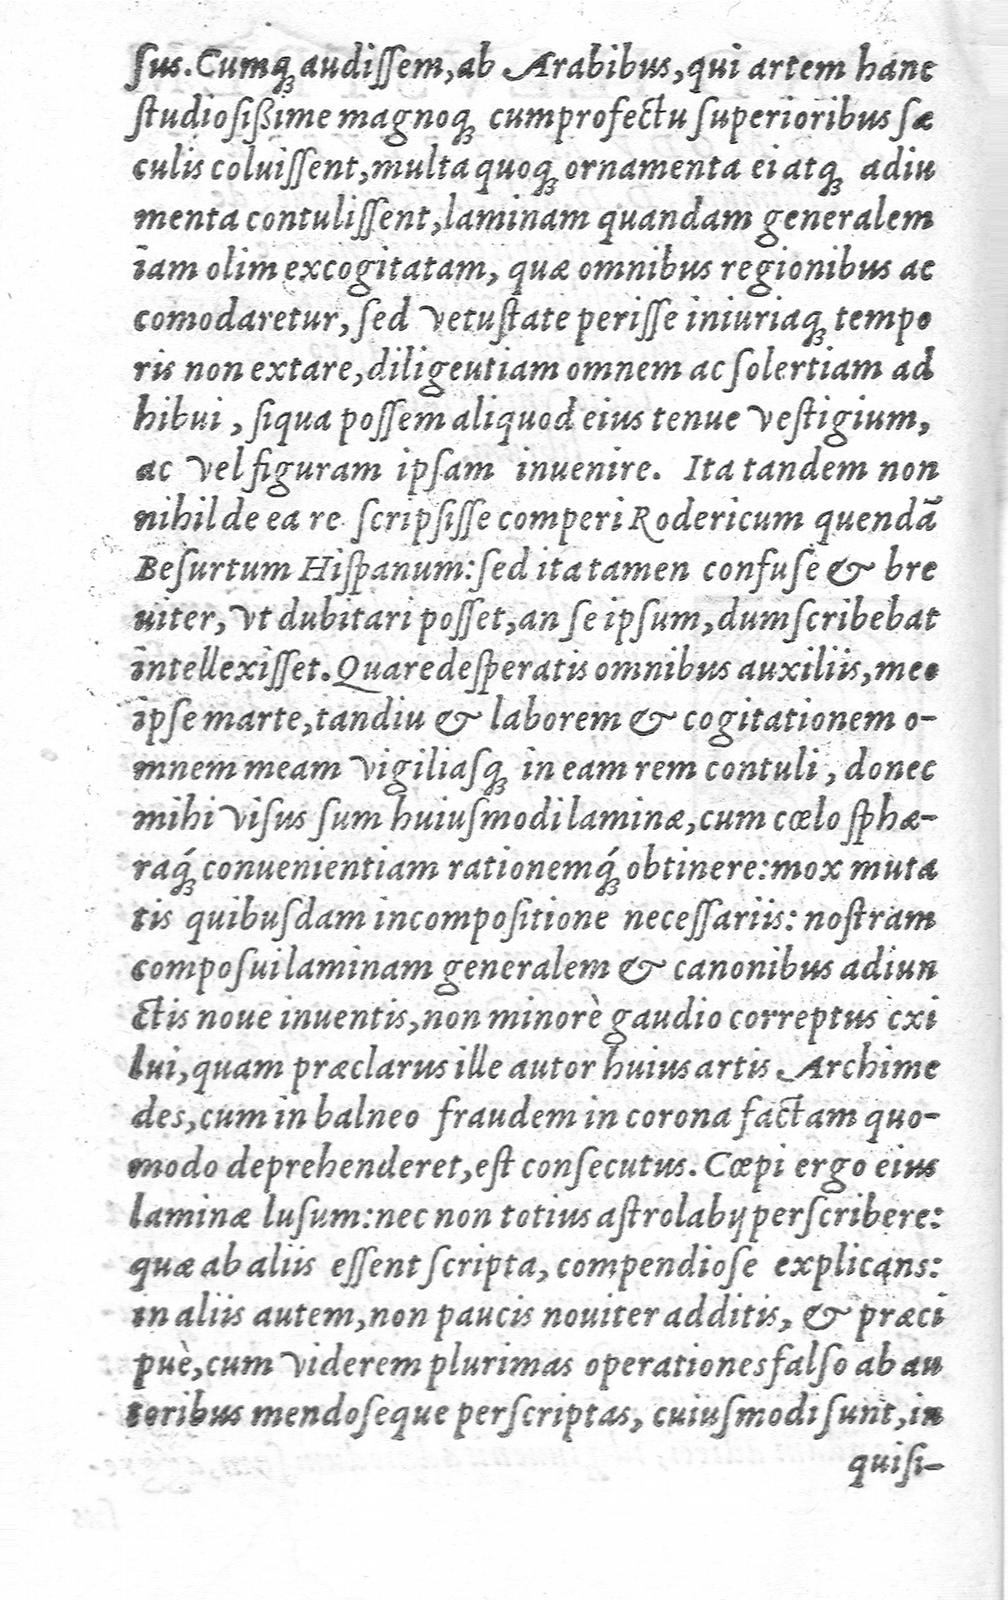 ſus. Cumq́ꝫ audiſſem, ab Arabibus, qui artem hanc
ſtudioſißime magnoqꝫ cum profectu ſuperioribus ſæ
culis coluiſſent, multa quoqꝫ ornamenta ei atqꝫ adiu
menta contuliſſent, laminam quandam generalem
iam olim excogitatam, quæ omnibus regionibus ac
comodaretur, ſed vetuſtate periſſe iniuriaqꝫ tempo
ris non extare, diligeutiam omnem ac ſolertiam ad
hibui, ſiqua poſſem aliquod eius tenue veſtigium,
ac vel figuram ipſam inuenire. Ita tandem non
nihil de ea re ſcripſiſſe comperi Rodericum quendã
Beſurtum Hiſpanum: ſed ita tamen confuſe & bre
uiter, vt dubitari poſſet, an ſe ipſum, dum ſcribebat
intellexiſſet. Quare deſperatis omnibus auxiliis, meo
ipſe marte, tandiu & laborem & cogitationem o-
mnem meam vigiliaſqꝫ in eam rem contuli, donec
mihi viſus ſum huiuſmodi laminæ, cum cœlo ſphæ-
raq́ꝫ conuenientiam rationemq́ꝫ obtinere: mox muta
tis quibuſdam in compoſitione neceſſariis: noſtram
compoſui laminam generalem & canonibus adiun
ctis noue inuentis, non minorè gaudio correptus exi
lui, quam præclarus ille autor huius artis Archime
des, cum in balneo fraudem in corona factam quo-
modo deprehenderet, eſt conſecutus. Cœpi ergo eius
laminæ luſum: nec non totius aſtrolabij perſcribere:
quæ ab aliis eſſent ſcripta, compendioſe explicans:
in aliis autem, non paucis nouiter additis, & præci
puè, cum viderem plurimas operationes falſo ab au
toribus mendoſeque perſcriptas, cuiuſmodi ſunt, in
quiſi-